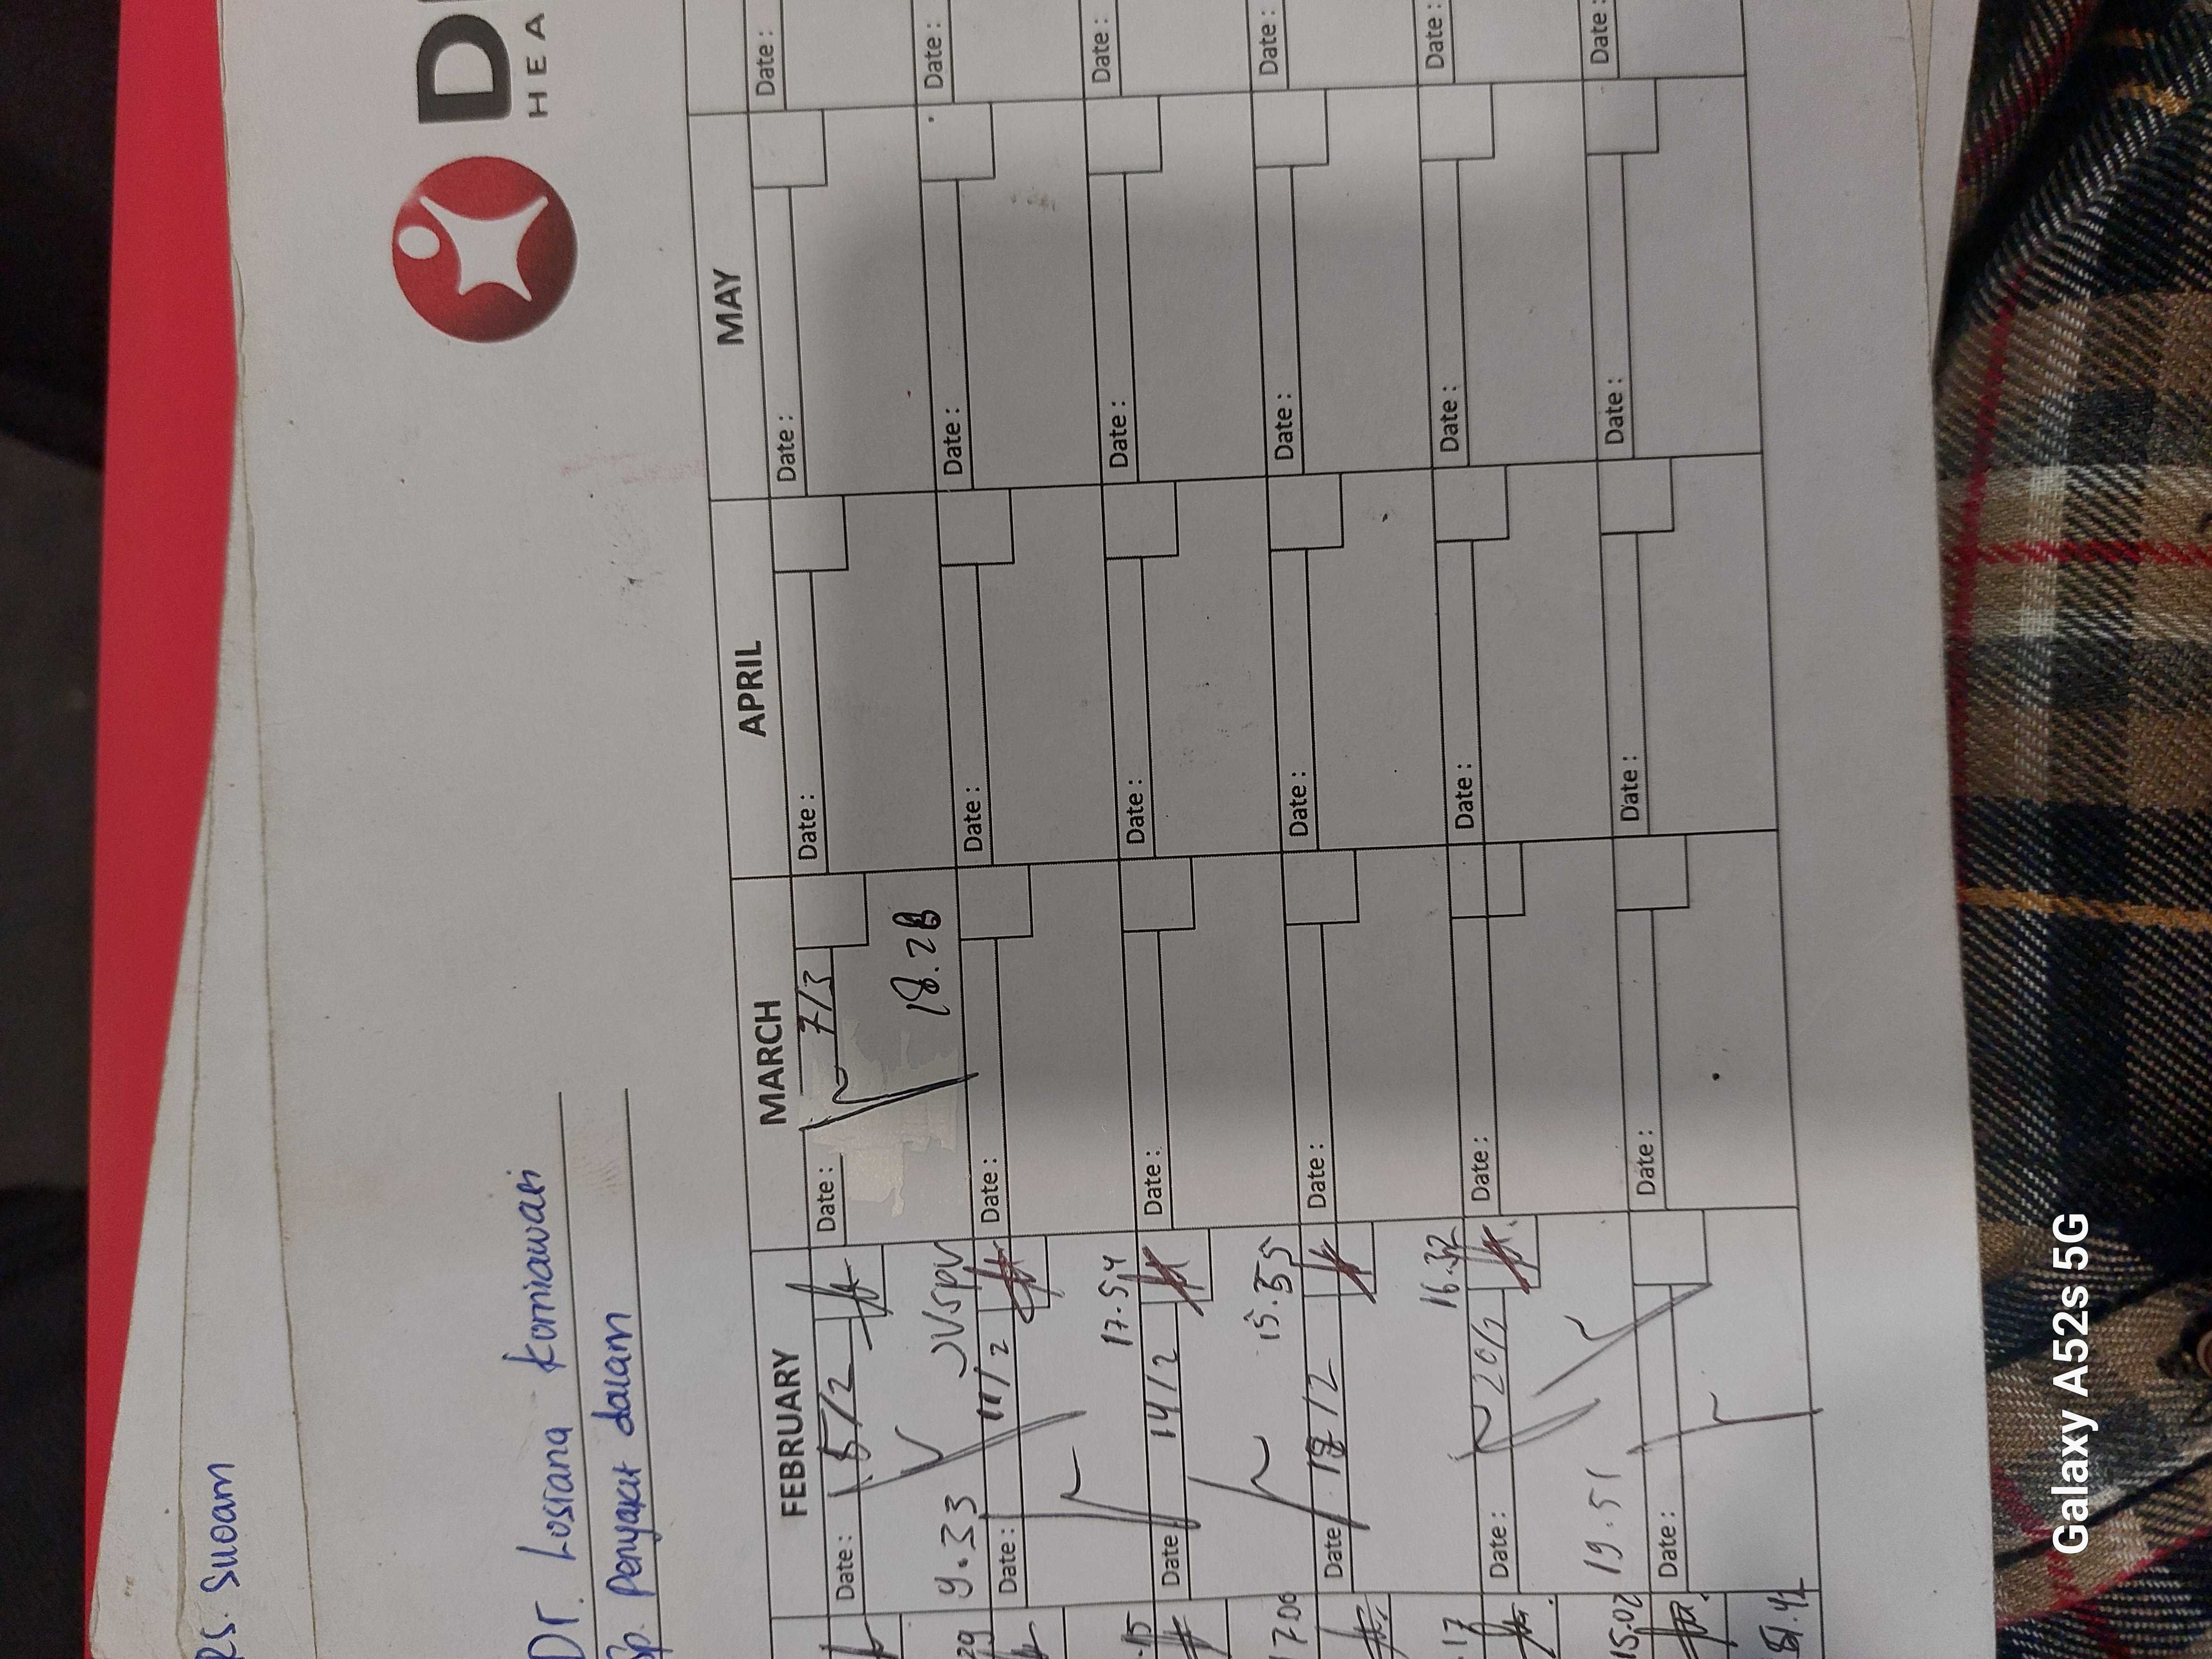 RS. Siloam
D
HEA
Dr. Lusiana Korniawati
Sp. Penyakit dalam
FEBRUARY MARCH APRIL MAY
Date: 5/2 Date: 7/3 Date: Date: Date:
9.33 18.28
Date: 11/2 Date: Date: Date: Date:
17.54
Date 14/2 Date: Date: Date: Date:
15.55
Date 18/2 Date: Date: Date: Date:
16.32
Date: 20/2 Date: Date: Date: Date:
19.51
Date: Date: Date: Date: Date:
29
.15
17.06
.17
15.02
Galaxy A52s 5G